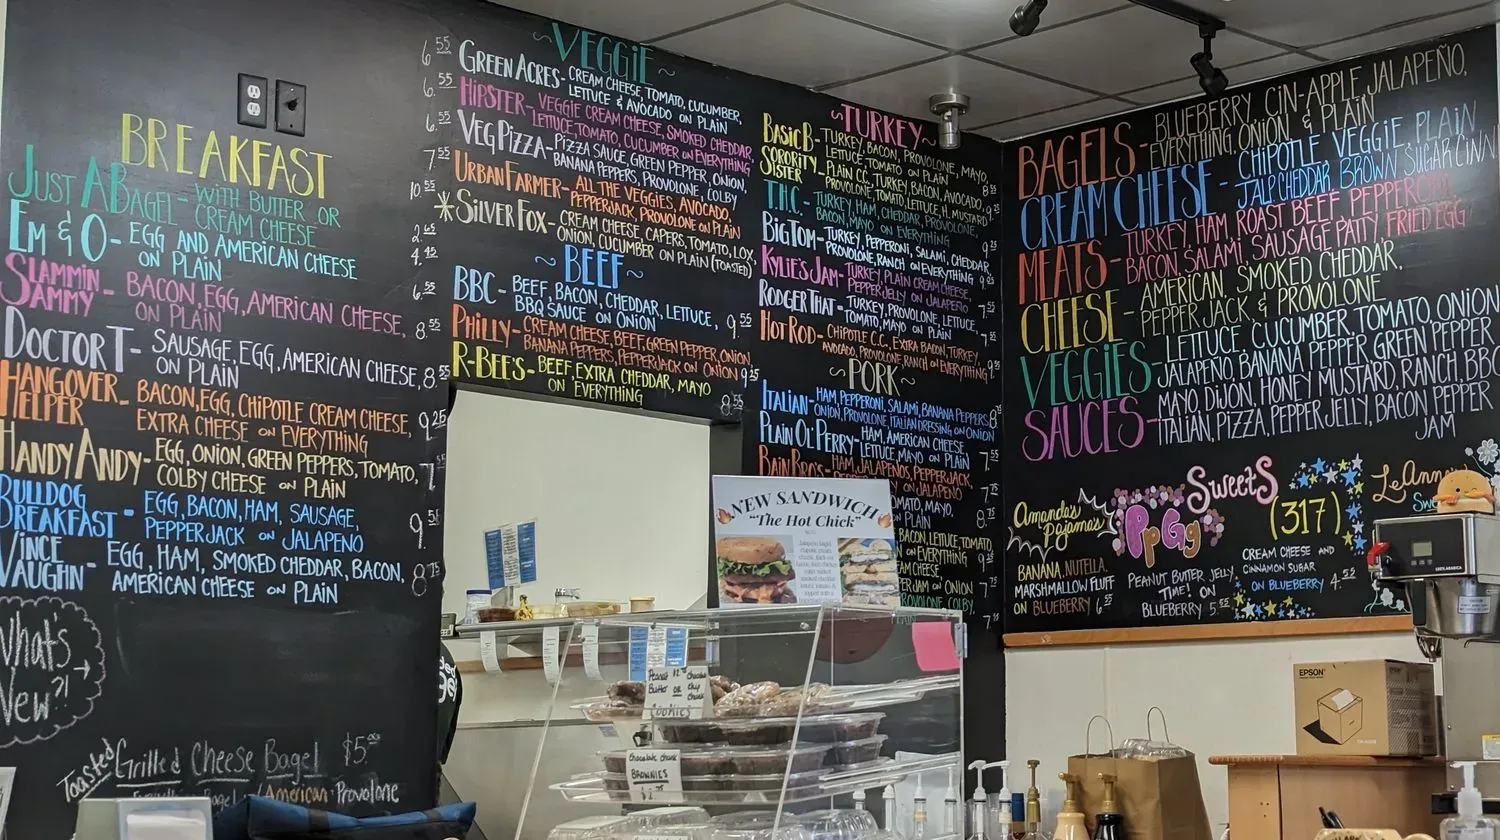 BREAKFAST
JUST A BAGEL - WITH BUTTER OR
CREAM CHEESE
2.65
EM & O - EGG AND AMERICAN CHEESE
ON PLAIN
4.45
SLAMMIN SAMMY - BACON, EGG, AMERICAN CHEESE,
ON PLAIN
6.55
DOCTOR T - SAUSAGE, EGG, AMERICAN CHEESE,
ON PLAIN
8.55
HANGOVER HELPER - BACON, EGG, CHIPOTLE CREAM CHEESE,
EXTRA CHEESE ON EVERYTHING
9.25
HANDY ANDY - EGG, ONION, GREEN PEPPERS, TOMATO,
COLBY CHEESE ON PLAIN
BULLDOG BREAKFAST - EGG, BACON, HAM, SAUSAGE,
PEPPERJACK ON JALAPENO
VINCE VAUGHN - EGG, HAM, SMOKED CHEDDAR, BACON,
AMERICAN CHEESE ON PLAIN
8.75
What's
New?!
Toasted Grilled Cheese Bagel $5.
American Provolone
~ VEGGIE ~
6.55 GREEN ACRES - CREAM CHEESE, TOMATO, CUCUMBER,
LETTUCE & AVOCADO ON PLAIN
6.55 HIPSTER - VEGGIE CREAM CHEESE, SMOKED CHEDDAR,
LETTUCE, TOMATO, CUCUMBER ON EVERYTHING
6.55 VEG PIZZA - PIZZA SAUCE, GREEN PEPPER, ONION,
BANANA PEPPERS, PROVOLONE, COLBY
7.55 URBAN FARMER - ALL THE VEGGIES, AVOCADO,
PEPPERJACK, PROVOLONE ON PLAIN
10.55 *SILVER FOX - CREAM CHEESE, CAPERS, TOMATO, LOX,
ONION, CUCUMBER ON PLAIN (TOASTED)
~ BEEF ~
BBC - BEEF, BACON, CHEDDAR, LETTUCE,
BBQ SAUCE ON ONION
9.55
PHILLY - CREAM CHEESE, BEEF, GREEN PEPPER, ONION,
BANANA PEPPERS, PEPPERJACK ON ONION
R-BEE'S - BEEF, EXTRA CHEDDAR, MAYO
ON EVERYTHING
8.55
~ TURKEY ~
BASIC B - TURKEY, BACON, PROVOLONE, MAYO,
LETTUCE, TOMATO ON PLAIN
SORORITY SISTER - PLAIN C.C. TURKEY, BACON, AVOCADO,
PROVOLONE, TOMATO, LETTUCE, H. MUSTARD
T.H.C. - TURKEY, HAM, CHEDDAR, PROVOLONE,
BACON, MAYO ON EVERYTHING
BIG TOM - TURKEY, PEPPERONI, SALAMI, CHEDDAR,
PROVOLONE, RANCH ON EVERYTHING
KYLIE'S JAM - TURKEY, PLAIN CREAM CHEESE,
PEPPER JELLY ON JALAPENO
RODGER THAT - TURKEY, PROVOLONE, LETTUCE,
TOMATO, MAYO ON PLAIN
HOT ROD - CHIPOTLE C.C. EXTRA BACON, TURKEY,
AVOCADO, PROVOLONE, RANCH ON EVERYTHING
~ PORK ~
ITALIAN - HAM, PEPPERONI, SALAMI, BANANA PEPPERS
ONION, PROVOLONE, ITALIAN DRESSING ON ONION
PLAIN OL' PERRY - HAM, AMERICAN CHEESE,
LETTUCE, MAYO ON PLAIN
BAIN BROS - HAM, JALAPENOS, PEPPERJACK,
ON JALAPENO
BACON, LETTUCE, TOMATO
ON EVERYTHING
ON ONION
PROVOLONE, COLBY
NEW SANDWICH
"The Hot Chick"
Peanut Butter OR chocolate chip chunk
Cookies
chocolate chunk
BROWNIES
BAGELS - BLUEBERRY, CIN-APPLE, JALAPEÑO,
EVERYTHING, ONION & PLAIN
CREAM CHEESE - CHIPOTLE VEGGIE, PLAIN
JALP CHEDDAR BROWN SUGAR CINN
MEATS - TURKEY, HAM, ROAST BEEF, PEPPERONI,
BACON, SALAMI, SAUSAGE PATTY, FRIED EGG
CHEESE - AMERICAN, SMOKED CHEDDAR,
PEPPER JACK & PROVOLONE
VEGGIES - LETTUCE, CUCUMBER, TOMATO, ONION
JALAPENO, BANANA PEPPER, GREEN PEPPER
SAUCES - MAYO, DIJON, HONEY MUSTARD, RANCH, BBQ
ITALIAN, PIZZA, PEPPER JELLY, BACON PEPPER
JAM
Amanda's
Pajama's
BANANA, NUTELLA,
MARSHMALLOW FLUFF
ON BLUEBERRY 6.55
SWEETS
PPGG
PEANUT BUTTER JELLY
TIME! ON
BLUEBERRY 5.55
(317)
CREAM CHEESE AND
CINNAMON SUGAR
ON BLUEBERRY 4.55
LeAnne's
EPSON